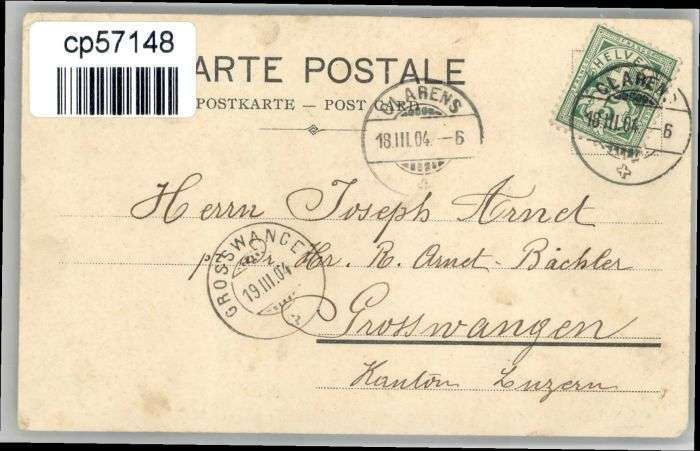 cp57148
ARTE POSTALE
POSTKARTE — POST CARD
CLARENS
18.III.04. –6
HELVE
CLARENS
18.III.04. –6
Herrn Joseph Arnet
Hr. R. Arnet-Bächler
GROSSWANGE
19.III.04
Grosswangen
Kanton Luzern